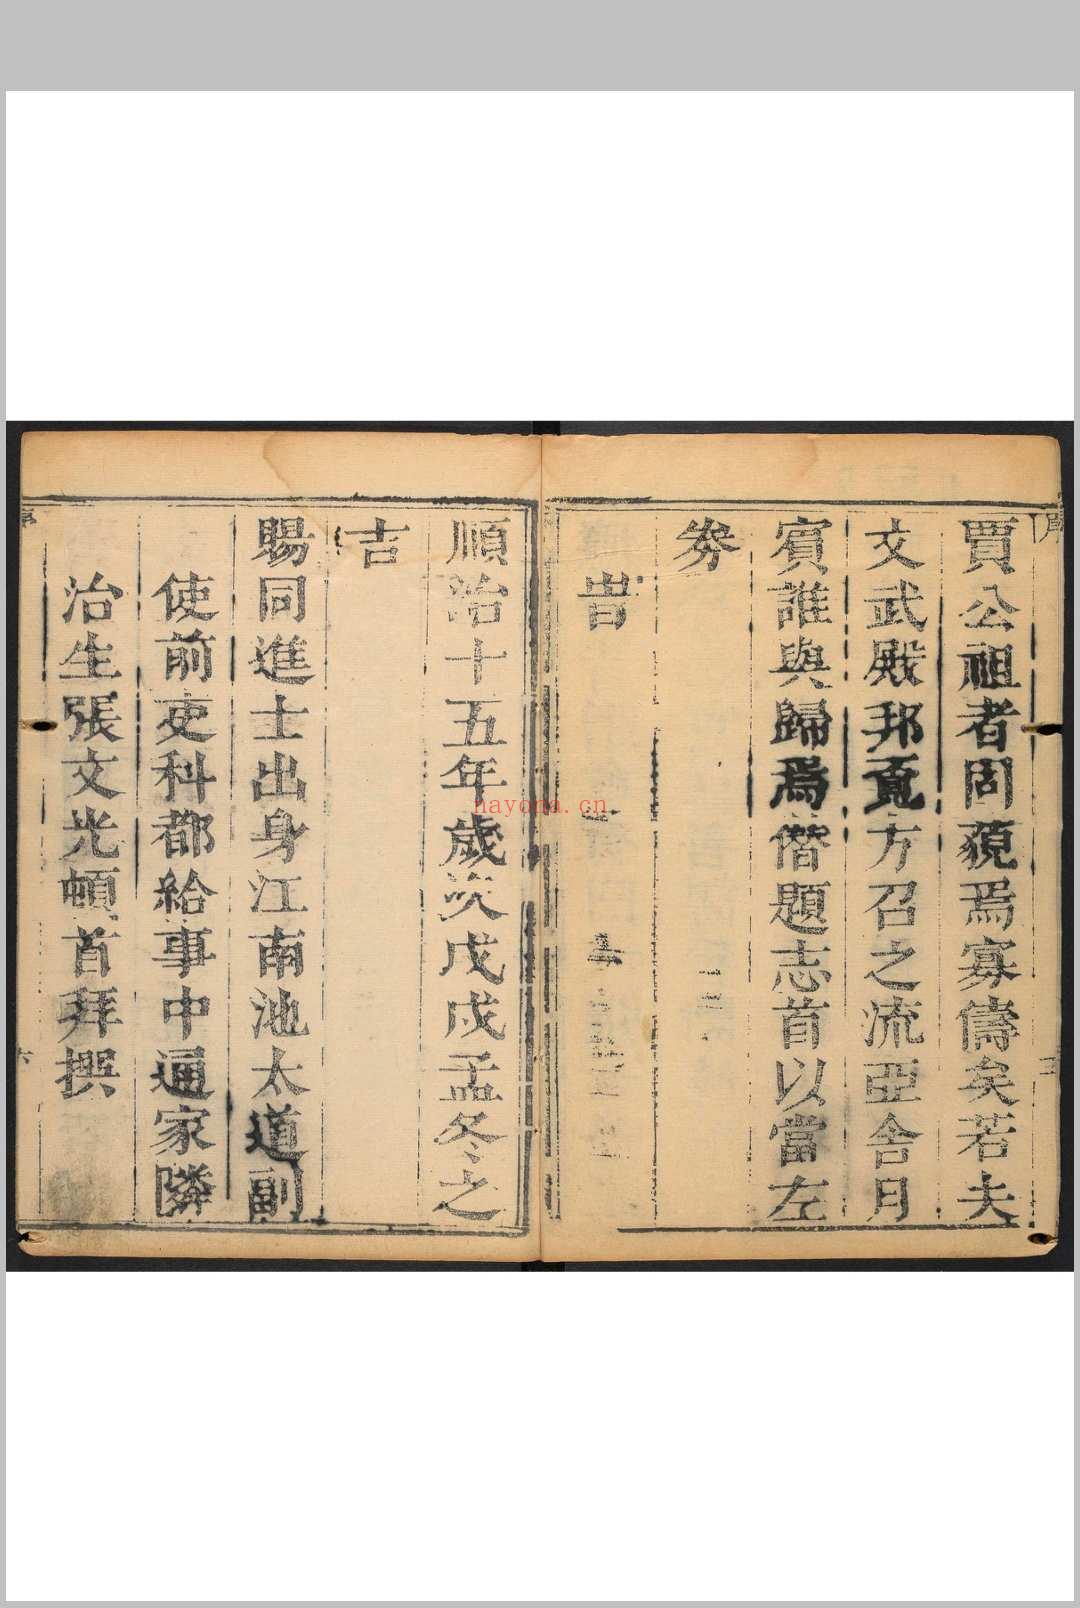 賈公祖者罔藐焉寡儔矣若夫
文武殿邦亶方召之流亞舍月
賓誰與歸焉僭題志首以當左
券
旹
順治十五年歲次戊戌孟冬之
吉
賜同進士出身江南池太道副
使前吏科都給事中通家隣
治生張文光頓首拜撰
nayona.cn